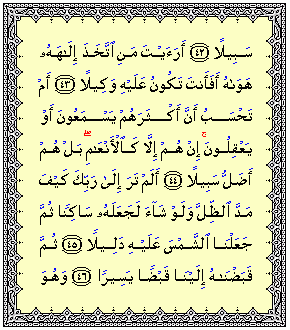 سَبِيلًا ﴿٤٢﴾ أَرَءَيْتَ مَنِ ٱتَّخَذَ إِلَٰهَهُۥ
هَوَىٰهُ أَفَأَنتَ تَكُونُ عَلَيْهِ وَكِيلًا ﴿٤٣﴾ أَمْ
تَحْسَبُ أَنَّ أَكْثَرَهُمْ يَسْمَعُونَ أَوْ
يَعْقِلُونَ ۚ إِنْ هُمْ إِلَّا كَٱلْأَنْعَٰمِ ۖ بَلْ هُمْ
أَضَلُّ سَبِيلًا ﴿٤٤﴾ أَلَمْ تَرَ إِلَىٰ رَبِّكَ كَيْفَ
مَدَّ ٱلظِّلَّ وَلَوْ شَآءَ لَجَعَلَهُۥ سَاكِنًا ثُمَّ
جَعَلْنَا ٱلشَّمْسَ عَلَيْهِ دَلِيلًا ﴿٤٥﴾ ثُمَّ
قَبَضْنَٰهُ إِلَيْنَا قَبْضًا يَسِيرًا ﴿٤٦﴾ وَهُوَ